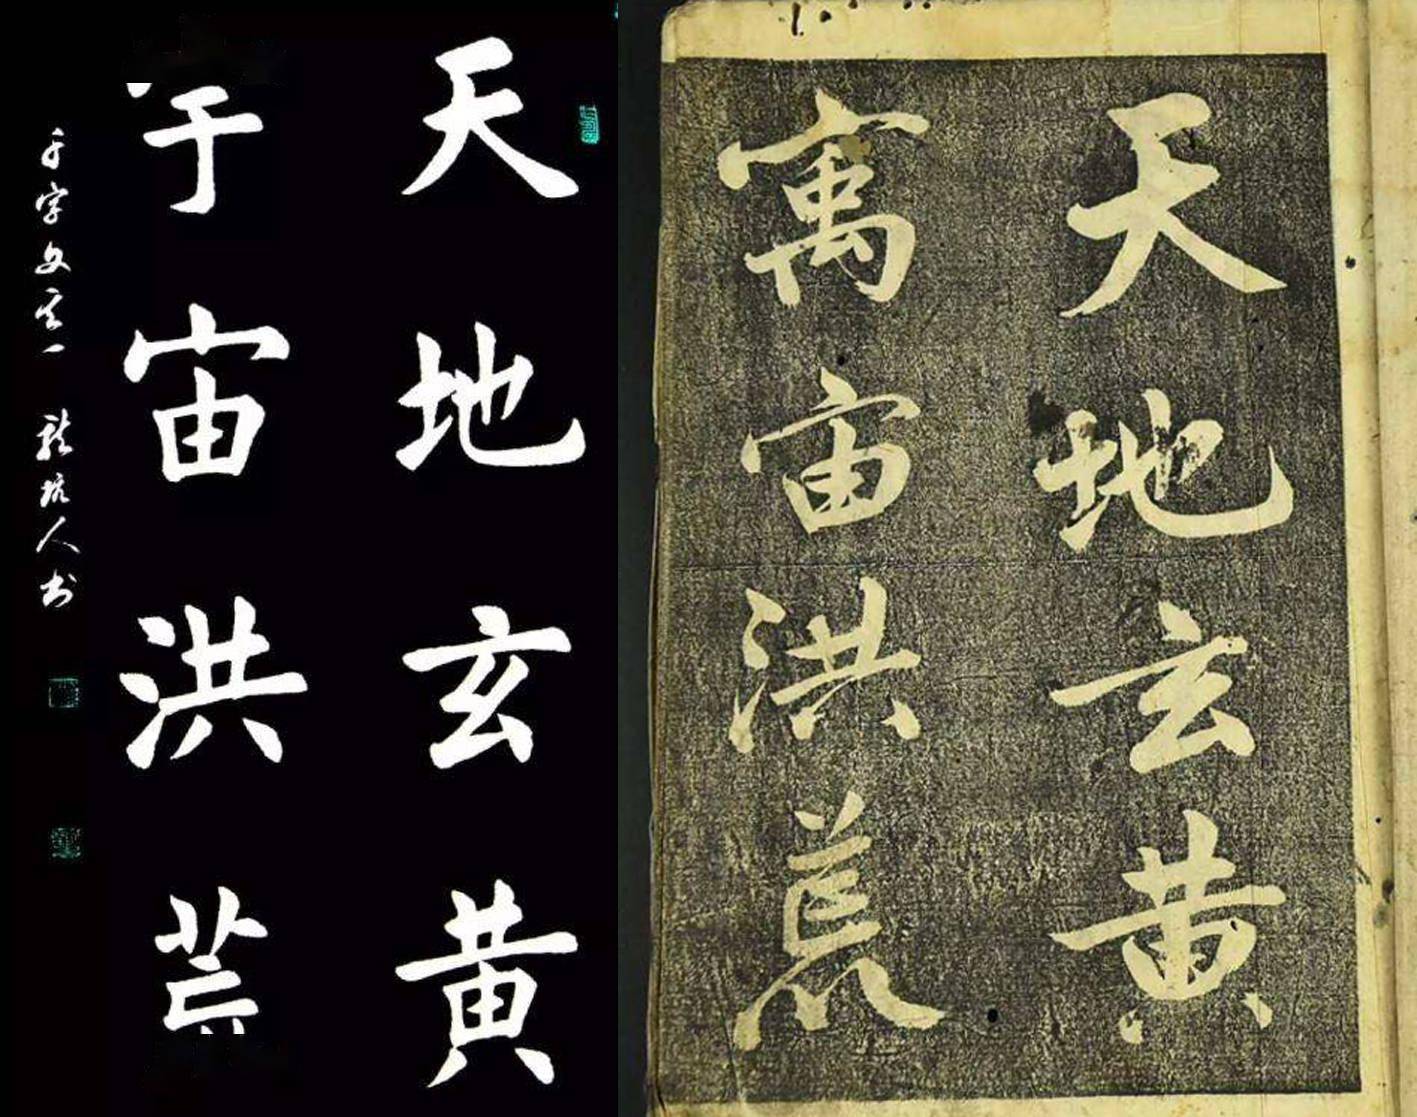 天地玄黄
于宙洪荒
千字文 一 坑人书
天地玄黄
寓宙洪荒